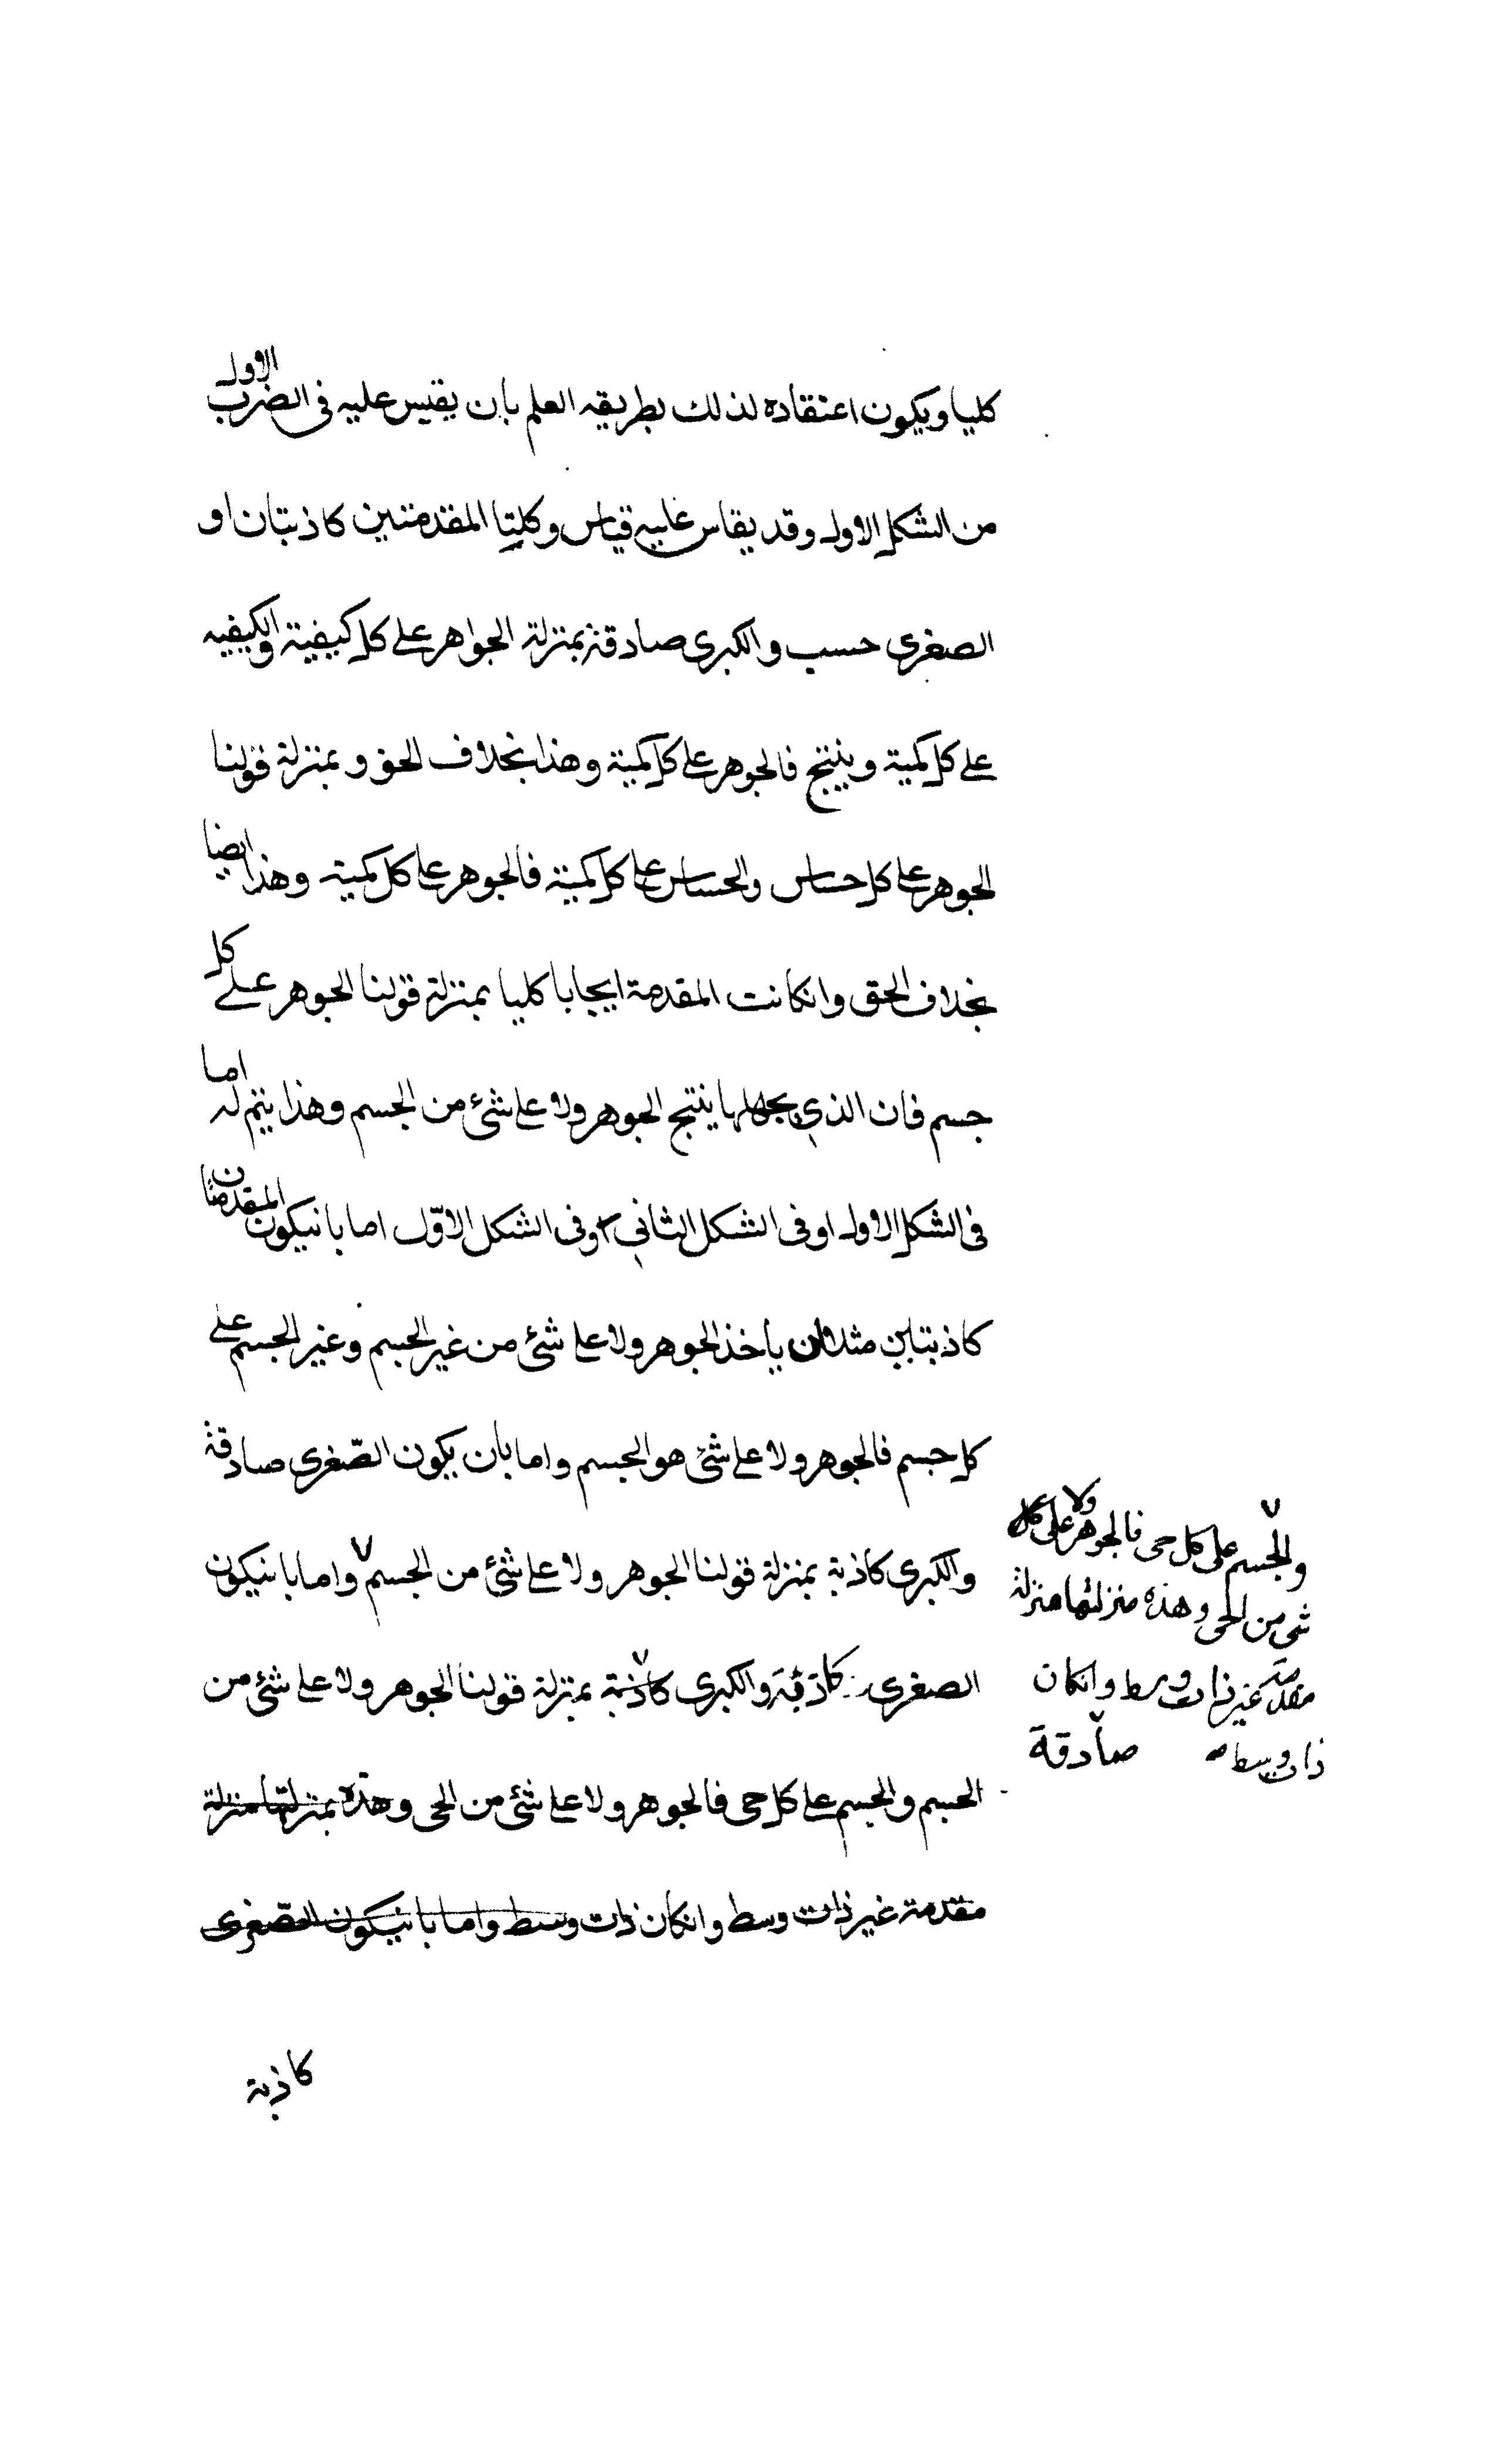 كليا ويكون اعتقاده لذلك بطريقه العلم بان يقيس عليه فى الضرب الاول
من الشكل الاول وقد يقاس عليه قياس وكليتا المقدمتين كاذبتان او
الصغرى حسب والكبرى صادقة بمنزلة الجواهر على كل كيفية والكيفيه
على كل كمية وينتج فالجوهر على كل كمية وهذا بخلاف الحق وبمنزلة قولنا
الجوهر على كل حساس والحساس على كل كمية فالجوهر على كل كمية وهذا ايضا
بخلاف الحق وانكانت المقدمة ايجابا كليا بمنزلة قولنا الجوهر على كل
جسم فان الذى يجهلها ينتج الجوهر ولا على شئ من الجسم وهذا يتم له اما
فى الشكل الاول او فى الشكل الثانى اوفى الشكل الاوّل اما بانيكون المقدمتان
كاذبتاين مثلا ان ياخذ الجوهر ولا على شئ من غير الجسم وغير الجسم على
كل جسم فالجوهر ولا على شئ هو الجسم واما بان يكون الصّغرى صادقة
والكبرى كاذبة بمنزلة قولنا الجوهر ولا على شئ من الجسم واما بانيكون
والجسم على كل حى فالجوهر ولا على كل
شى من الحى وهذه منزلتها منزلة
مقدمة غير ذات وسط وانكان
ذات وسط
صادقة
الصغرى كاذبة والكبرى كاذبة بمنزلة قولنا الجوهر ولا على شئ من
الجسم والجسم على كل حى فالجوهر ولا على شئ من الحى وهذه بمنزلتها منزلة
مقدمة غير ذات وسط وانكان ذات وسط واما بانيكون الصّغرى
كاذبة